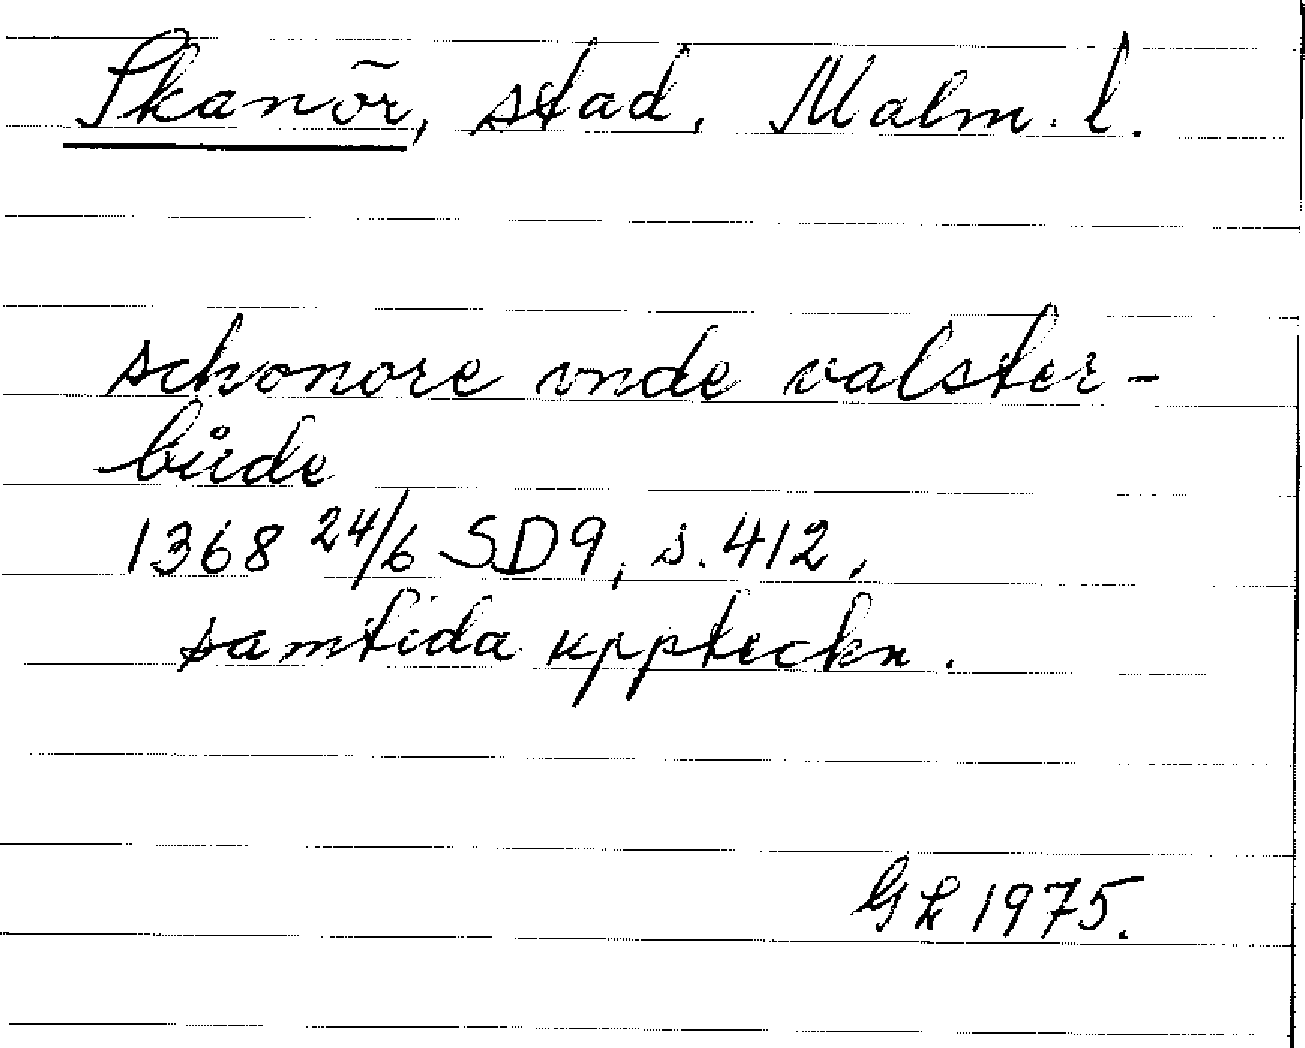 Skanör, stad. Malm. l.
schonore vnde valster-
bůde
1368 24/6 SD9, s. 412,
samtida uppteckn.
1975.